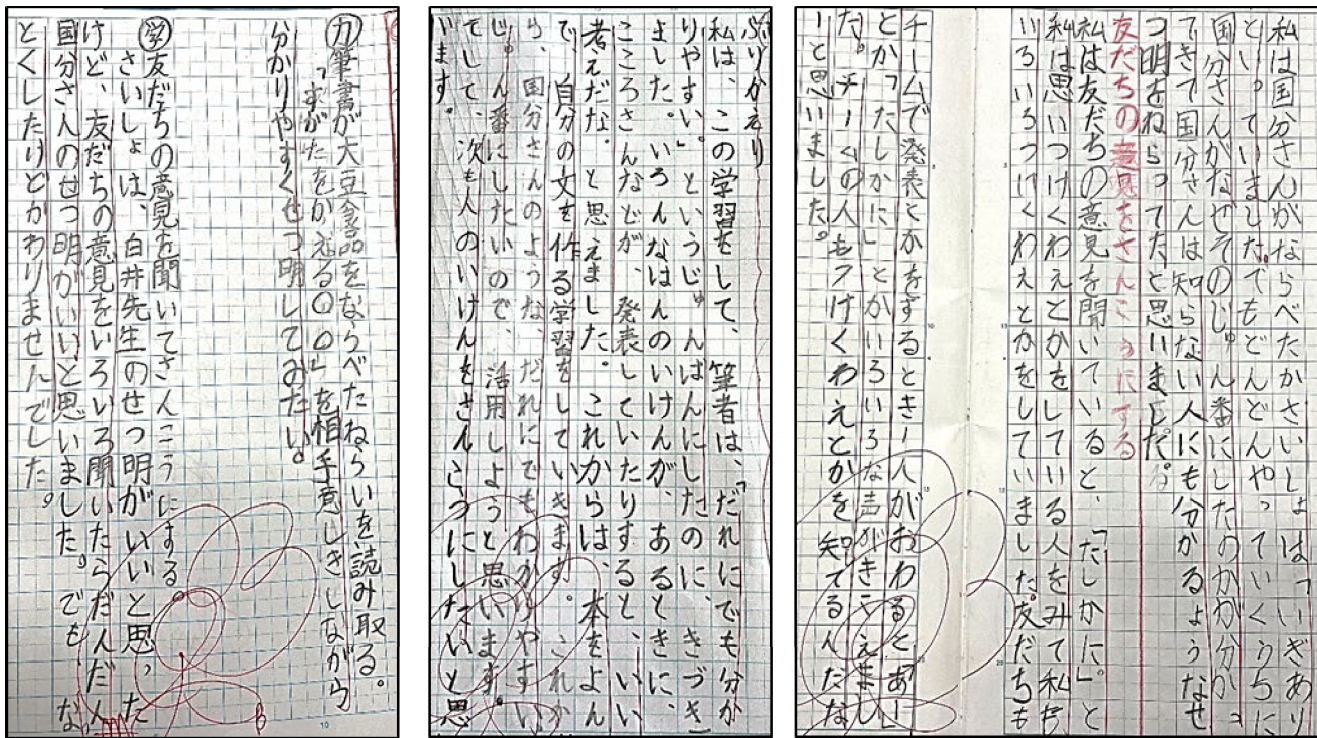 力 筆者が大豆食品をならべたねらいを読み取る。
「すがたをかえる○○」を相手意しきしながら
分かりやすくせつ明してみたい。
学 友だちの意見を聞いてさんこうにする。
さいしょは、白井先生のせつ明がいいと思った
けど、友だちの意見をいろいろ聞いたらだんだん
国分さんのせつ明がいいと思いました。でも、な
とくしたけどかわりませんでした。
ふりかえり
私は、この学習をして、筆者は、「だれにでも分か
りやすい。」というじゅんばんにしたのに、きづき
ました。いろんなはんのいけんが、あるときに、
こころさんなどが、発表していたりすると、いい
考えだな、と思えました。これからは、本をよん
で、自分の文を作る学習をしていきます。これか
ら、国分さんのような、だれにでもわかりやすい
じゅん番にしたいので、活用しようと思います。
そして、次も人のいけんをさんこうにしたいと思
います。
私は国分さんがならべたかさいしょはついぎあり
といっていました。でもどんどんやっていくうちに
国分さんがなぜそのじゅん番にしたのかが分かっ
てきて国分さんは知らない人にも分かるようなせ
つ明をねらってたと思いました。
友だちの意見をさんこうにする
私は友だちの意見を聞いていると、「たしかに」と
私は思いつけくわえとかをしている人をみて私も
いろいろつけくわえとかをしていました。友だちも
チームで発表とかをするとき一人がおわると「あー」
とか「たしかに」とかいろいろな声がきこえまし
た。チームの人もつけくわえとかを知てるんだな
ーと思いました。